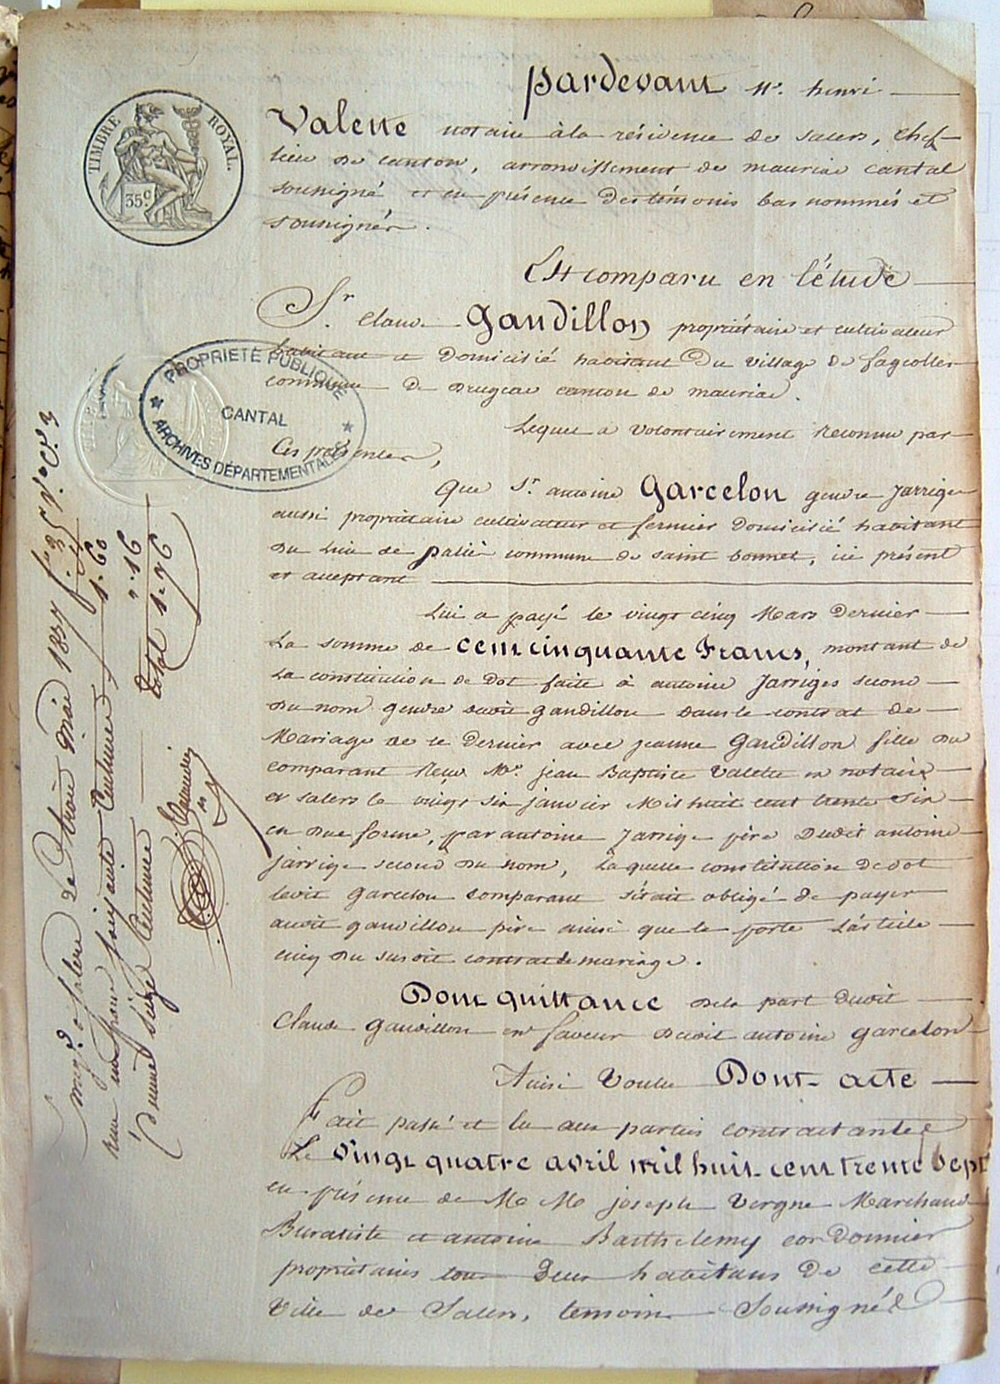 pardevant Me. henri
Valette notaire à la résidence de salers, chef
lieu de canton, arrondissement de mauriac cantal
soussigné et en présence des témoins bas nommés et
soussignés.
Est comparu en l'étude
Sr. Claude Gandillon propriétaire et cultivateur
habitant et domicilié habitant du village de fageolles
commune de drugeac canton de mauriac.
Lequel a volontairement reconnu par
Ces présentes,
Que Sr. antoine Garcelon gendre Jarrige
aussi propriétaire cultivateur et fermier domicilié habitant
du lieu de palie commune de saint bonnet, ici présent
et acceptant
Lui a payé le vingt cinq Mars dernier
La somme de cent cinquante Francs, montant de
La constitution de dot faite à antoine Jarriges second
du nom gendre dudit gandillon dans le contrat de
Mariage de ce dernier avec jeanne Gandillon fille du
comparant reçu Me. jean Baptiste Valette notaire
salers le vingt six janvier Mil huit cent trente six
en due forme, par antoine Jarrige père dudit antoine
jarrige second du nom, Laquelle constitution de dot
ledit Garcelon comparant s'était obligé de payer
audit gandillon père ainsi que le porte l'article
cinq du susdit contrat de mariage.
Dont quittance de la part dudit
Claude Gandillon en faveur dudit antoine garcelon
Ainsi Voulu Dont acte
Fait passé et lu aux parties contractantes
Le vingt quatre avril mil huit cent trente sept
en présence de M M joseph Vergne Marchand
Buraliste et antoine Barthelemy cordonnier
propriétaires tous deux habitans de cette
Ville de Salers, temoins Soussignés
TIMBRE ROYAL.
35c
PROPRIÉTÉ PUBLIQUE
CANTAL
ARCHIVES DÉPARTEMENTALES
à Salers le trois mai 1837 f. 35 Vo. C. 3
reçu un franc soixante centimes 1.60
seize centimes ".16
total 1.76